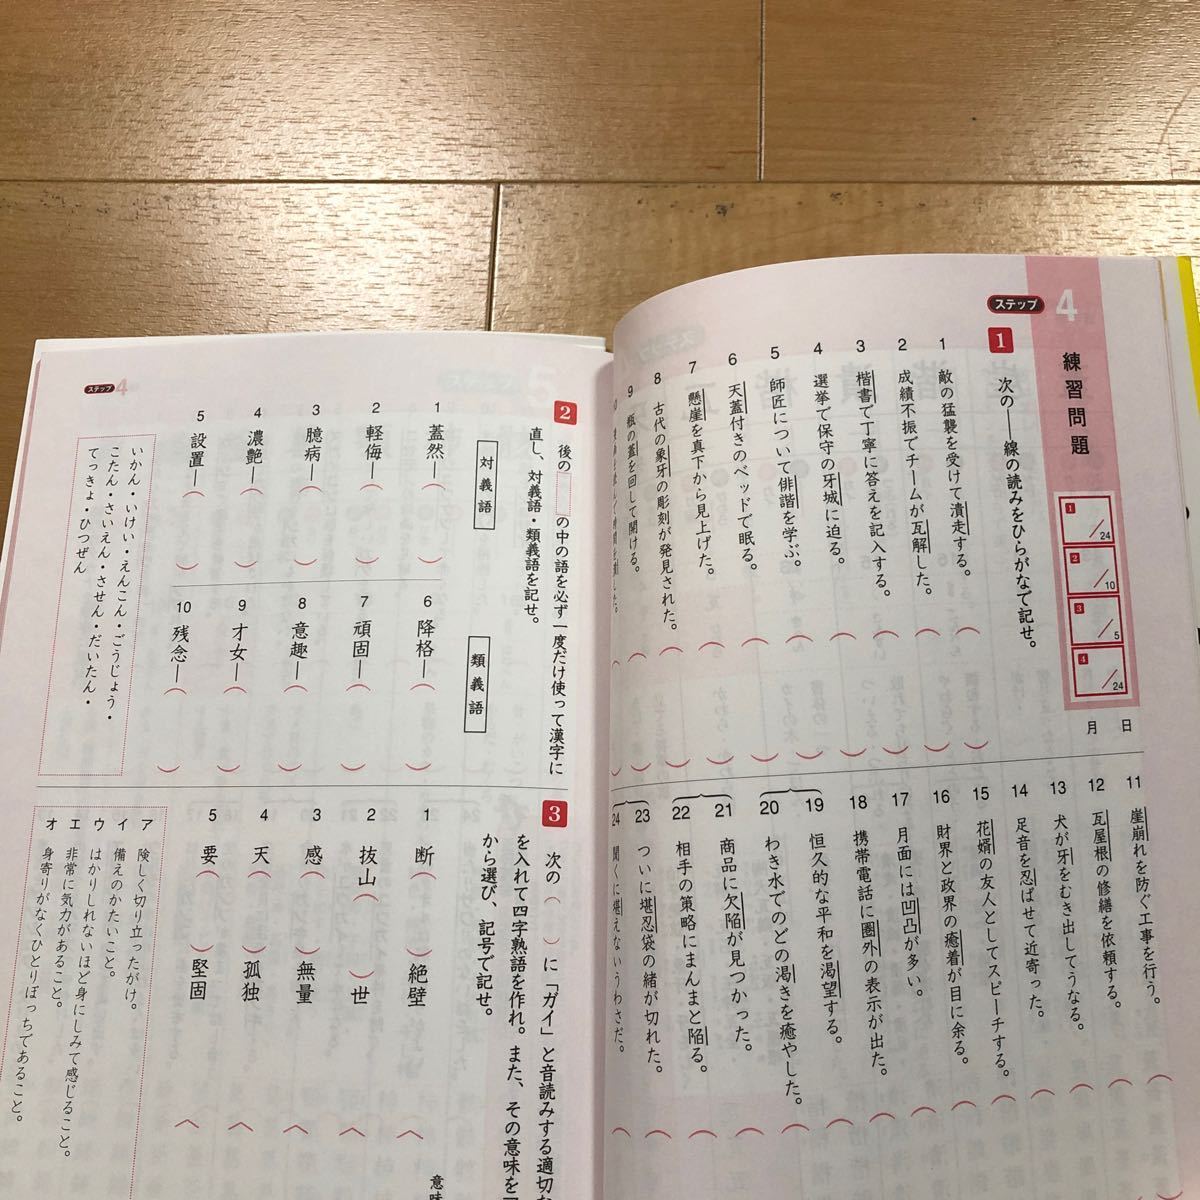 ステップ 4
練習問題
1 /24
2 /10
3 /5
4 /24
月 日
1 次の――線の読みをひらがなで記せ。
1 敵の猛襲を受けて潰走する。( )
2 成績不振でチームが瓦解した。( )
3 楷書で丁寧に答えを記入する。( )
4 選挙で保守の牙城に迫る。( )
5 師匠について俳諧を学ぶ。( )
6 天蓋付きのベッドで眠る。( )
7 懸崖を真下から見上げた。( )
8 古代の象牙の彫刻が発見された。( )
9 瓶の蓋を回して開ける。( )
10
11 崖崩れを防ぐ工事を行う。(
12 瓦屋根の修繕を依頼する。(
13 犬が牙をむき出してうなる。(
14 足音を忍ばせて近寄った。(
15 花婿の友人としてスピーチする。(
16 財界と政界の癒着が目に余る。(
17 月面には凹凸が多い。(
18 携帯電話に圏外の表示が出た。(
19 恒久的な平和を渇望する。(
20 わき水でのどの渇きを癒やした。(
21 商品に欠陥が見つかった。(
22 相手の策略にまんまと陥る。(
23 ついに堪忍袋の緒が切れた。(
24 聞くに堪えないうわさだ。(
ステップ 4
2 後の□の中の語を必ず一度だけ使って漢字に
直し、対義語・類義語を記せ。
対義語
1 蓋然―( )
2 軽侮―( )
3 臆病―( )
4 濃艶―( )
5 設置―( )
類義語
6 降格―( )
7 頑固―( )
8 意趣―( )
9 才女―( )
10 残念―( )
いかん・いけい・えんこん・ごうじょう・
こたん・さいえん・させん・だいたん・
てっきょ・ひつぜん
3 次の( )に「ガイ」と音読みする適切な
を入れて四字熟語を作れ。また、その意味を
から選び、記号で記せ。
意味
1 断( )絶壁
2 抜山( )世
3 感( )無量
4 天( )孤独
5 要( )堅固
ア 険しく切り立ったがけ。
イ 備えのかたいこと。
ウ はかりしれないほど身にしみて感じること。
エ 非常に気力があること。
オ 身寄りがなくひとりぼっちであること。